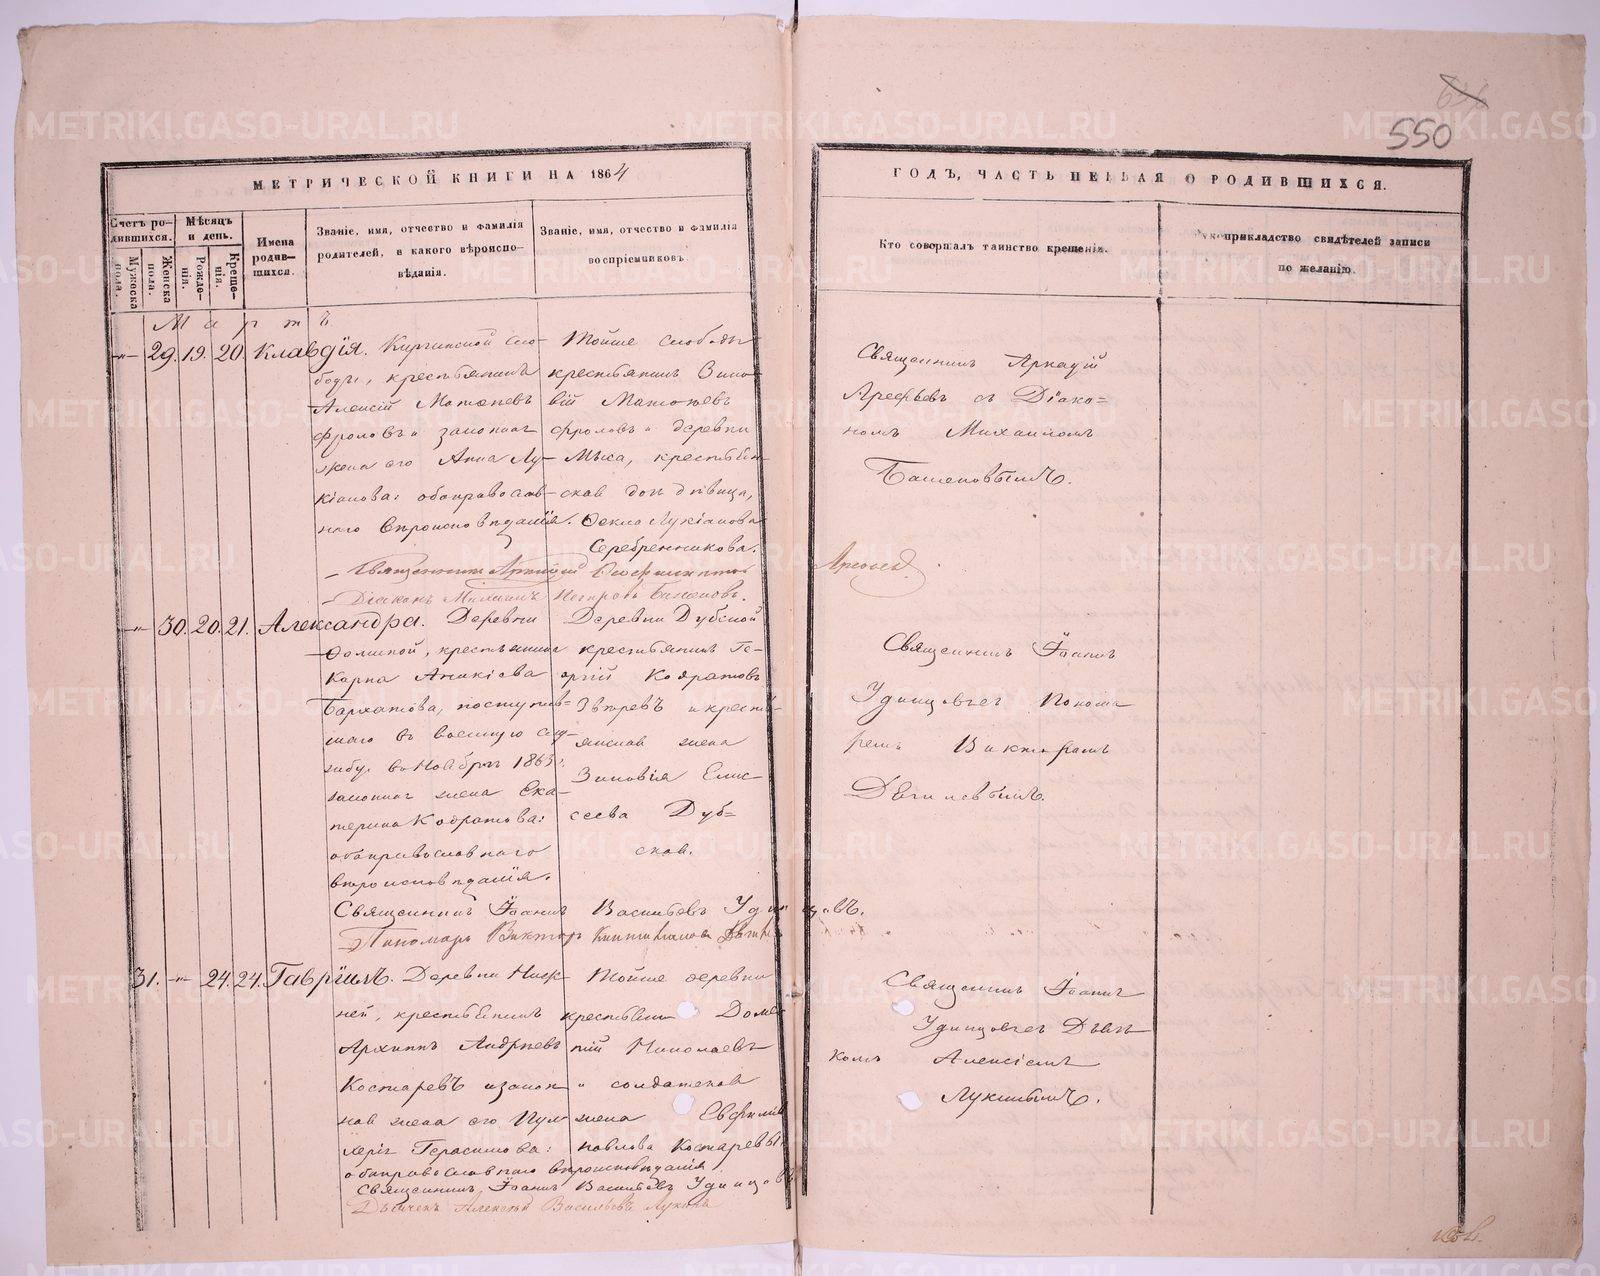 550
МЕТРИЧЕСКОЙ КНИГИ НА 1864
ГОДЪ, ЧАСТЬ ПЕРВАЯ О РОДИВШИХСЯ.
Счетъ ро-
дившихся.
Мужеска
пола.
Женска
пола.
Мѣсяцъ
и день.
Рожде-
нія.
Креще-
нія.
Имена
родив-
шихся.
Званіе, имя, отчество и фамилія
родителей, и какого вѣроиспо-
вѣданія.
Званіе, имя, отчество и фамилія
воспріемниковъ.
Кто совершалъ таинство крещенія.
Рукоприкладство свидѣтелей записи
по желанію.
Мартъ
-"- 29. 19. 20. Клавдія.
Киргинской сло-
боды, крестьянинъ
Алексій
Фроловъ и законная
жена его Анна Лу-
кіанова: оба православ-
наго вѣроисповѣданія.
Тойже слободы
крестьянинъ Зино-
вій
Фроловъ и деревни
крестьян-
ская дочь дѣвица,
Ѳекла Лукіанова
Серебренникова.
Священникъ Аркадій
Діаконъ Михаилъ
Священникъ Аркадій
Арефьевъ съ Діако-
номъ Михаиломъ
Баженовымъ.
-"- 30. 20. 21. Александра.
Деревни
крестьянина
Карпа Аникіева
Бархатова, поступив-
шаго въ военную слу-
жбу въ Ноябрѣ 1863:
законная жена Ека-
терина Кодратова:
оба православнаго
вѣроисповѣданія.
Деревни Дубской
крестьянинъ Ге-
оргій Кодратовъ
Звѣревъ и кресть-
янская жена
Зиновія Елис-
сеева Дуб-
ская.
Священникъ Іоаннъ Васильевъ Удинцовъ.
Пономарь Викторъ
Священникъ Іоаннъ
Удинцовъ съ Понома-
ремъ Викторомъ
31. -"- 24. 24. Гавріилъ.
Деревни Ниж-
ней, крестьянинъ
Архиппъ Андреевъ
Костаревъ и закон-
ная жена его Пул-
херія Герасимова:
оба православнаго вѣроисповѣданія.
Тойже деревни
крестьянинъ
Николаевъ
и солдатская
жена Евфимія
Павлова Костаревы.
Священникъ Іоаннъ Васильевъ Удинцовъ
Дьячекъ Алексѣй Васильевъ Лукинъ
Священникъ Іоаннъ
Удинцовъ съ Дьяч-
комъ Алексіемъ
Лукинымъ.
METRIKI.GASO-URAL.RU